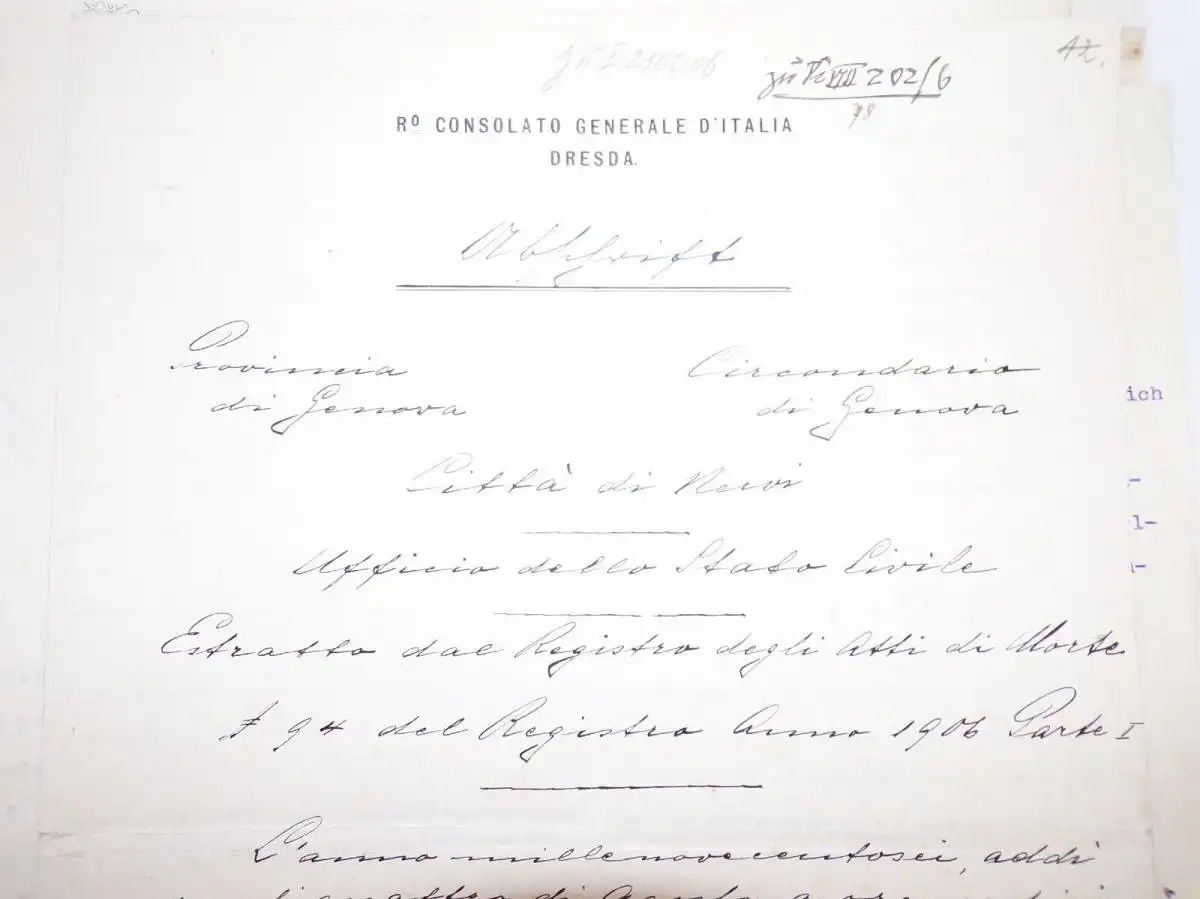 202/6
Rº CONSOLATO GENERALE D'ITALIA
DRESDA.
Abschrift
Provincia
di Genova
Circondario
di Genova
Città di Nervi
Ufficio dello Stato Civile
Estratto dal Registro degli Atti di Morte
94 del Registro Anno 1906 Parte I
L'anno millenovecentosei, addì
quattro di
ich
l-